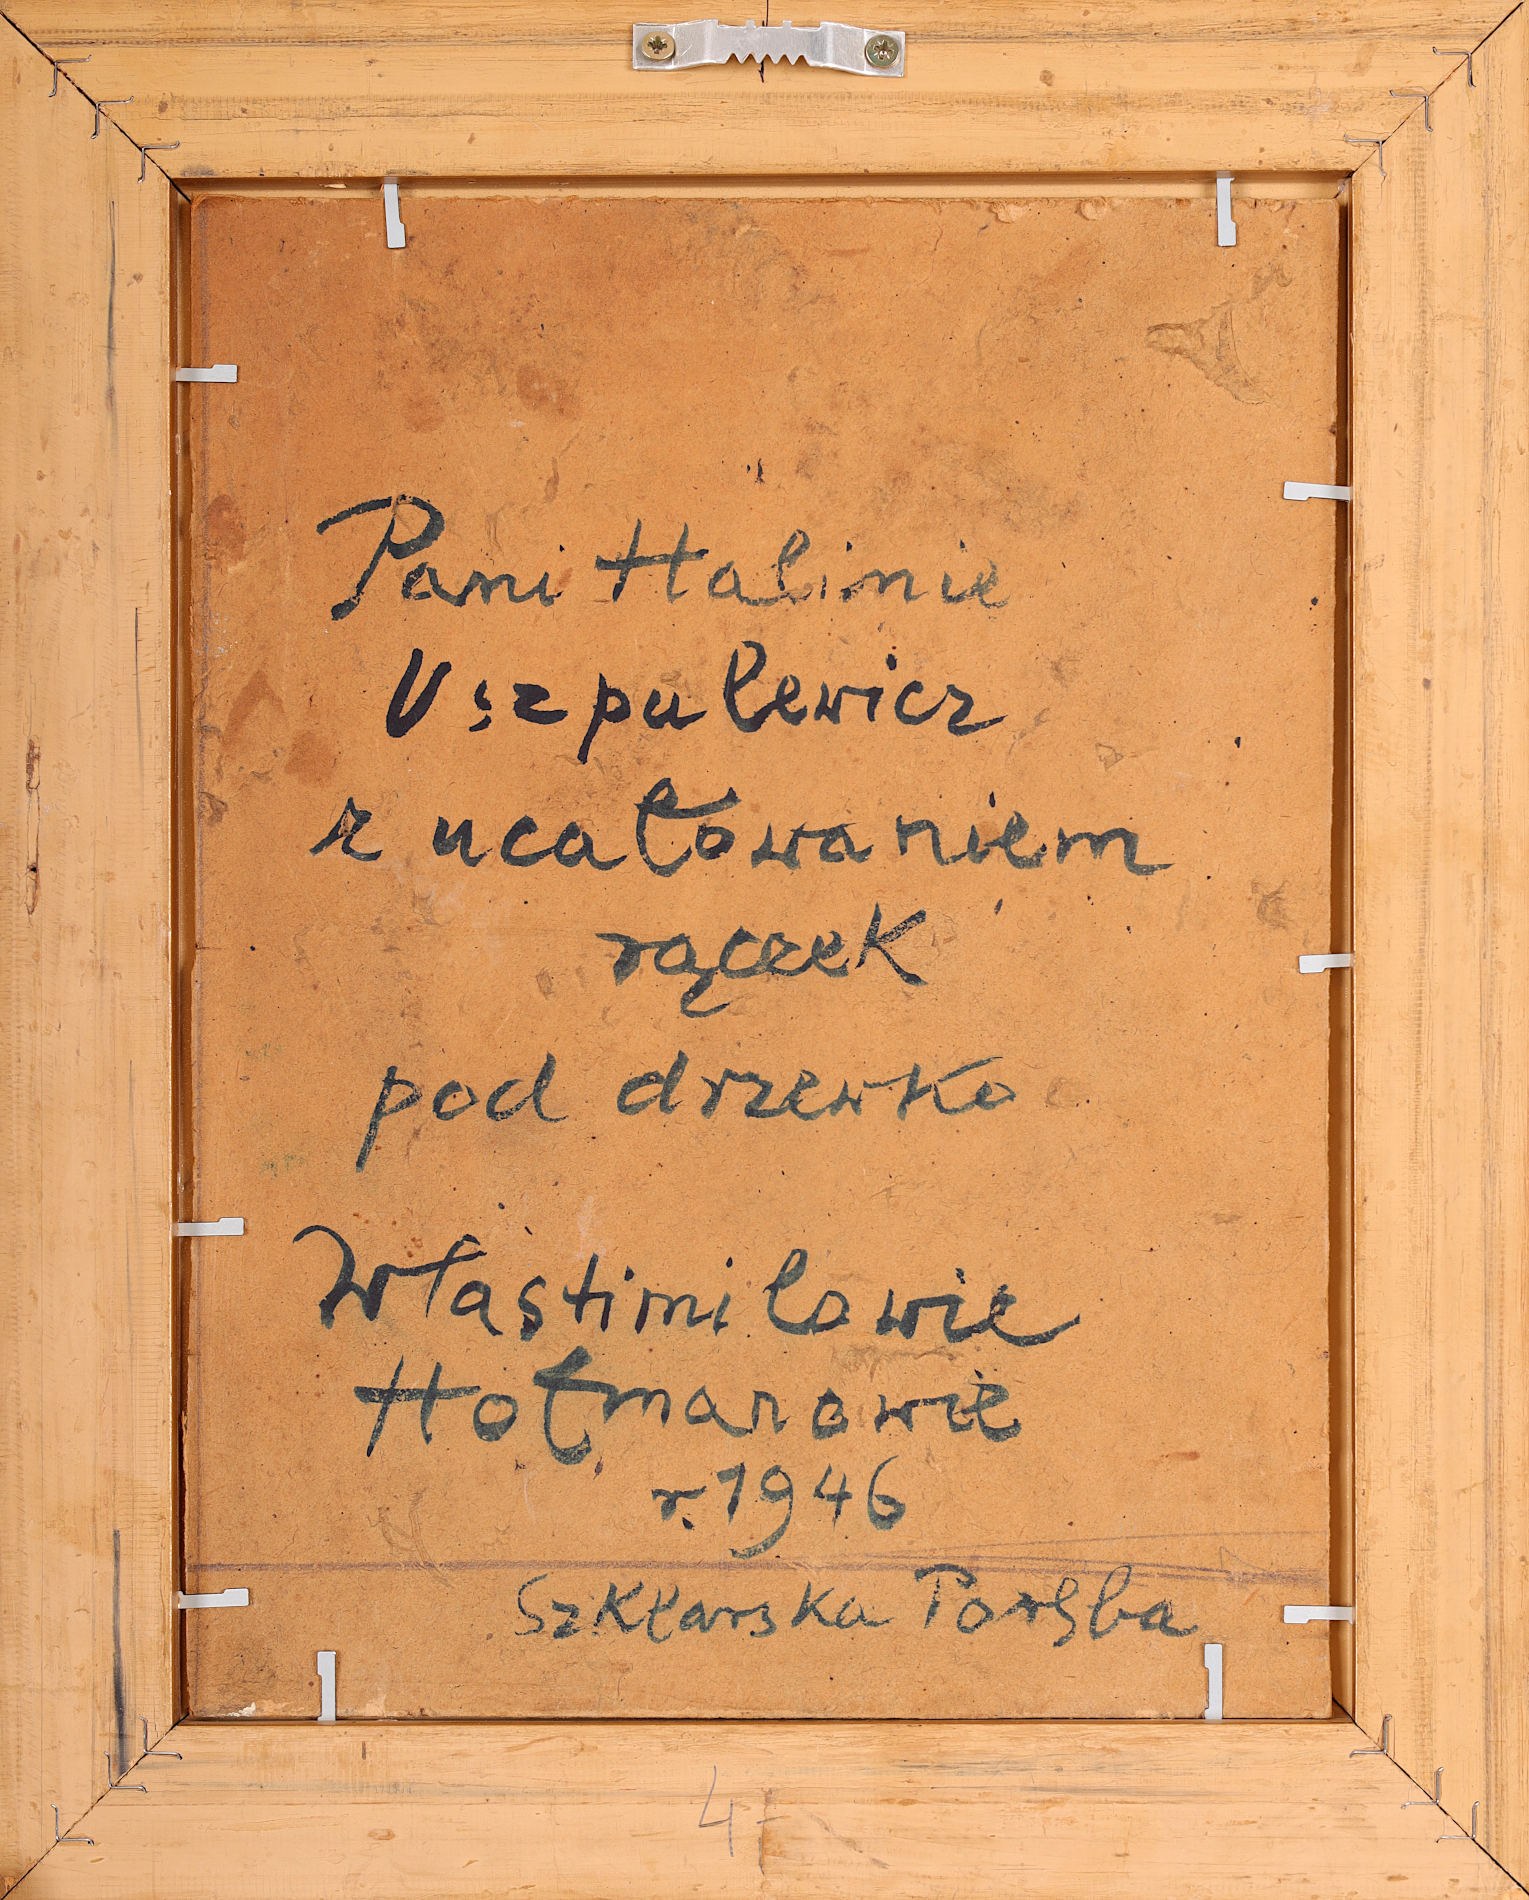 Pani Halinie
Uszpulewicz
z ucałowaniem
rączek
pod drzewko
Włastimilowie
Hofmanowie
r. 1946
Szklarska Poręba
4-